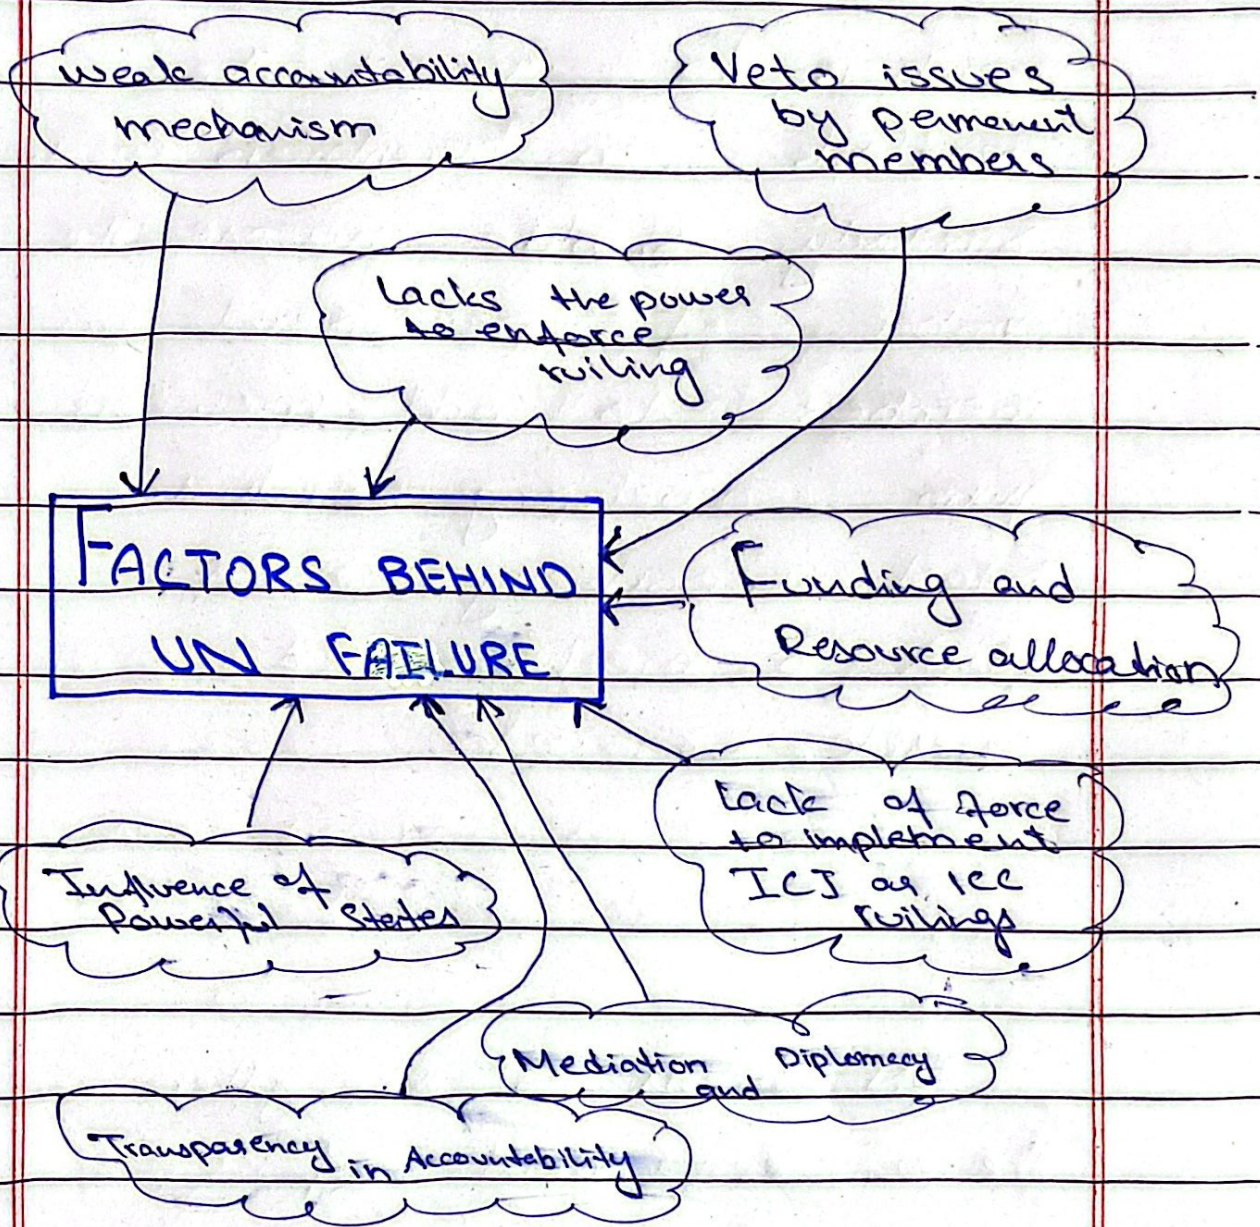 Weak accountability
mechanism
Veto issues
by permenent
members
Lacks the power
to enforce
ruiling
FACTORS BEHIND
UN FAILURE
Funding and
Resource allocation
Lack of force
to implement
ICJ or ICC
ruilings
Influence of
Powerful States
Mediation and Diplomacy
Transparency in Accountability